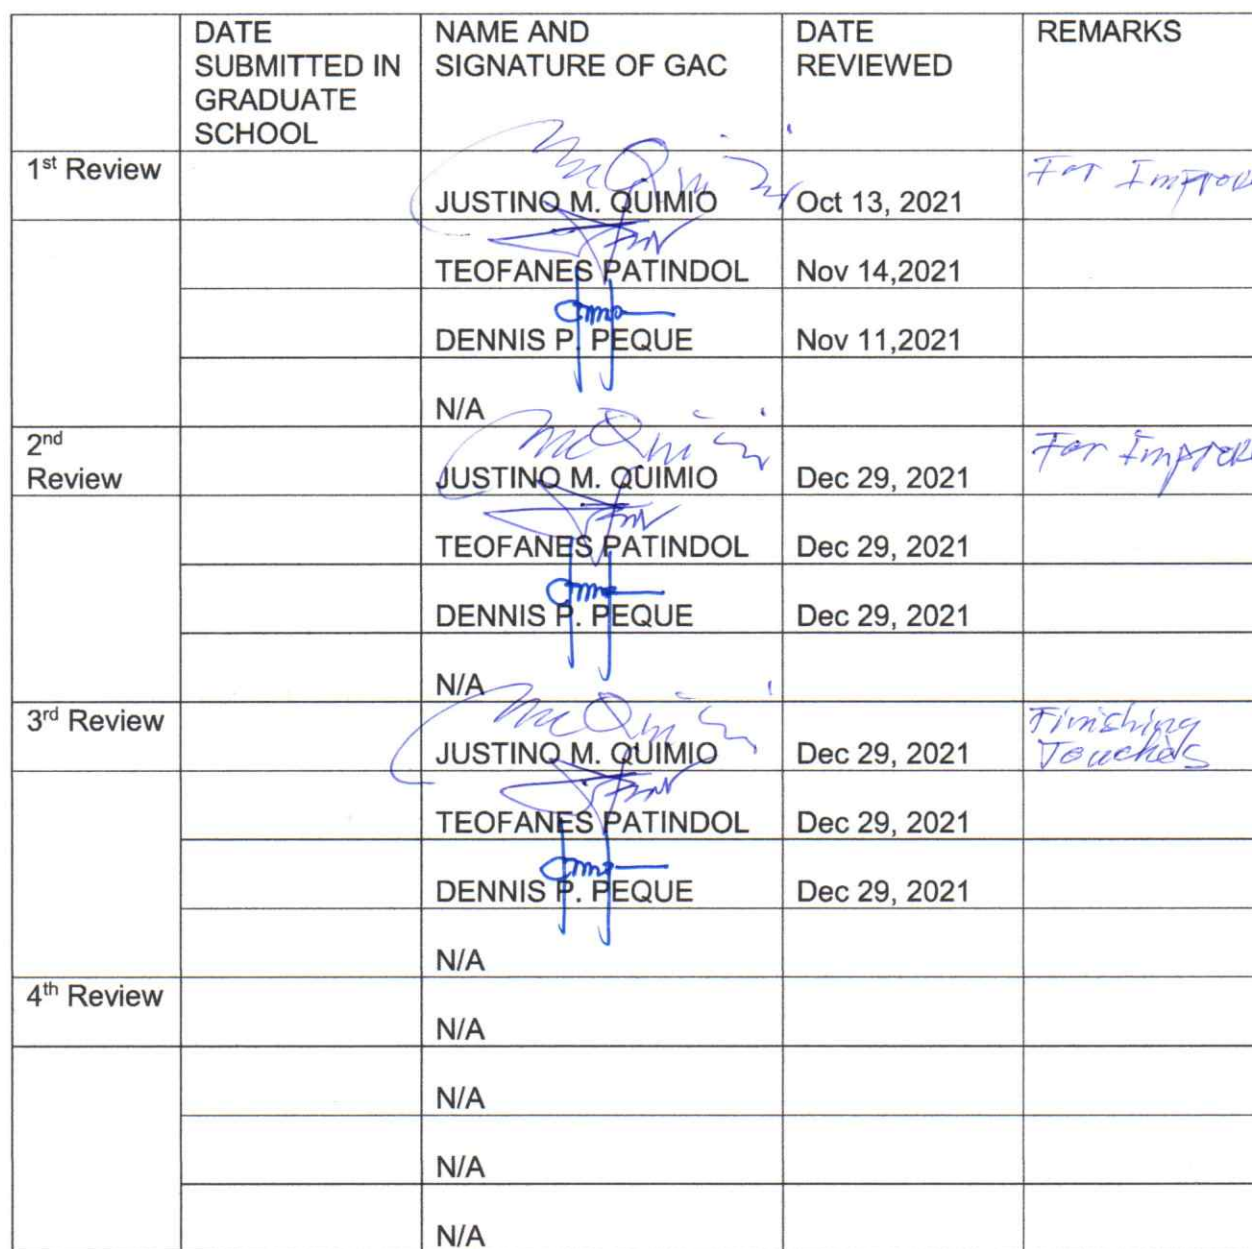 DATE SUBMITTED IN GRADUATE SCHOOL
NAME AND SIGNATURE OF GAC
DATE REVIEWED
REMARKS
1st Review
JUSTINO M. QUIMIO
Oct 13, 2021
For Improve
TEOFANES PATINDOL
Nov 14,2021
DENNIS P. PEQUE
Nov 11,2021
N/A
2nd Review
JUSTINO M. QUIMIO
Dec 29, 2021
For Improve
TEOFANES PATINDOL
Dec 29, 2021
DENNIS P. PEQUE
Dec 29, 2021
N/A
3rd Review
JUSTINO M. QUIMIO
Dec 29, 2021
Finishing
Touches
TEOFANES PATINDOL
Dec 29, 2021
DENNIS P. PEQUE
Dec 29, 2021
N/A
4th Review
N/A
N/A
N/A
N/A